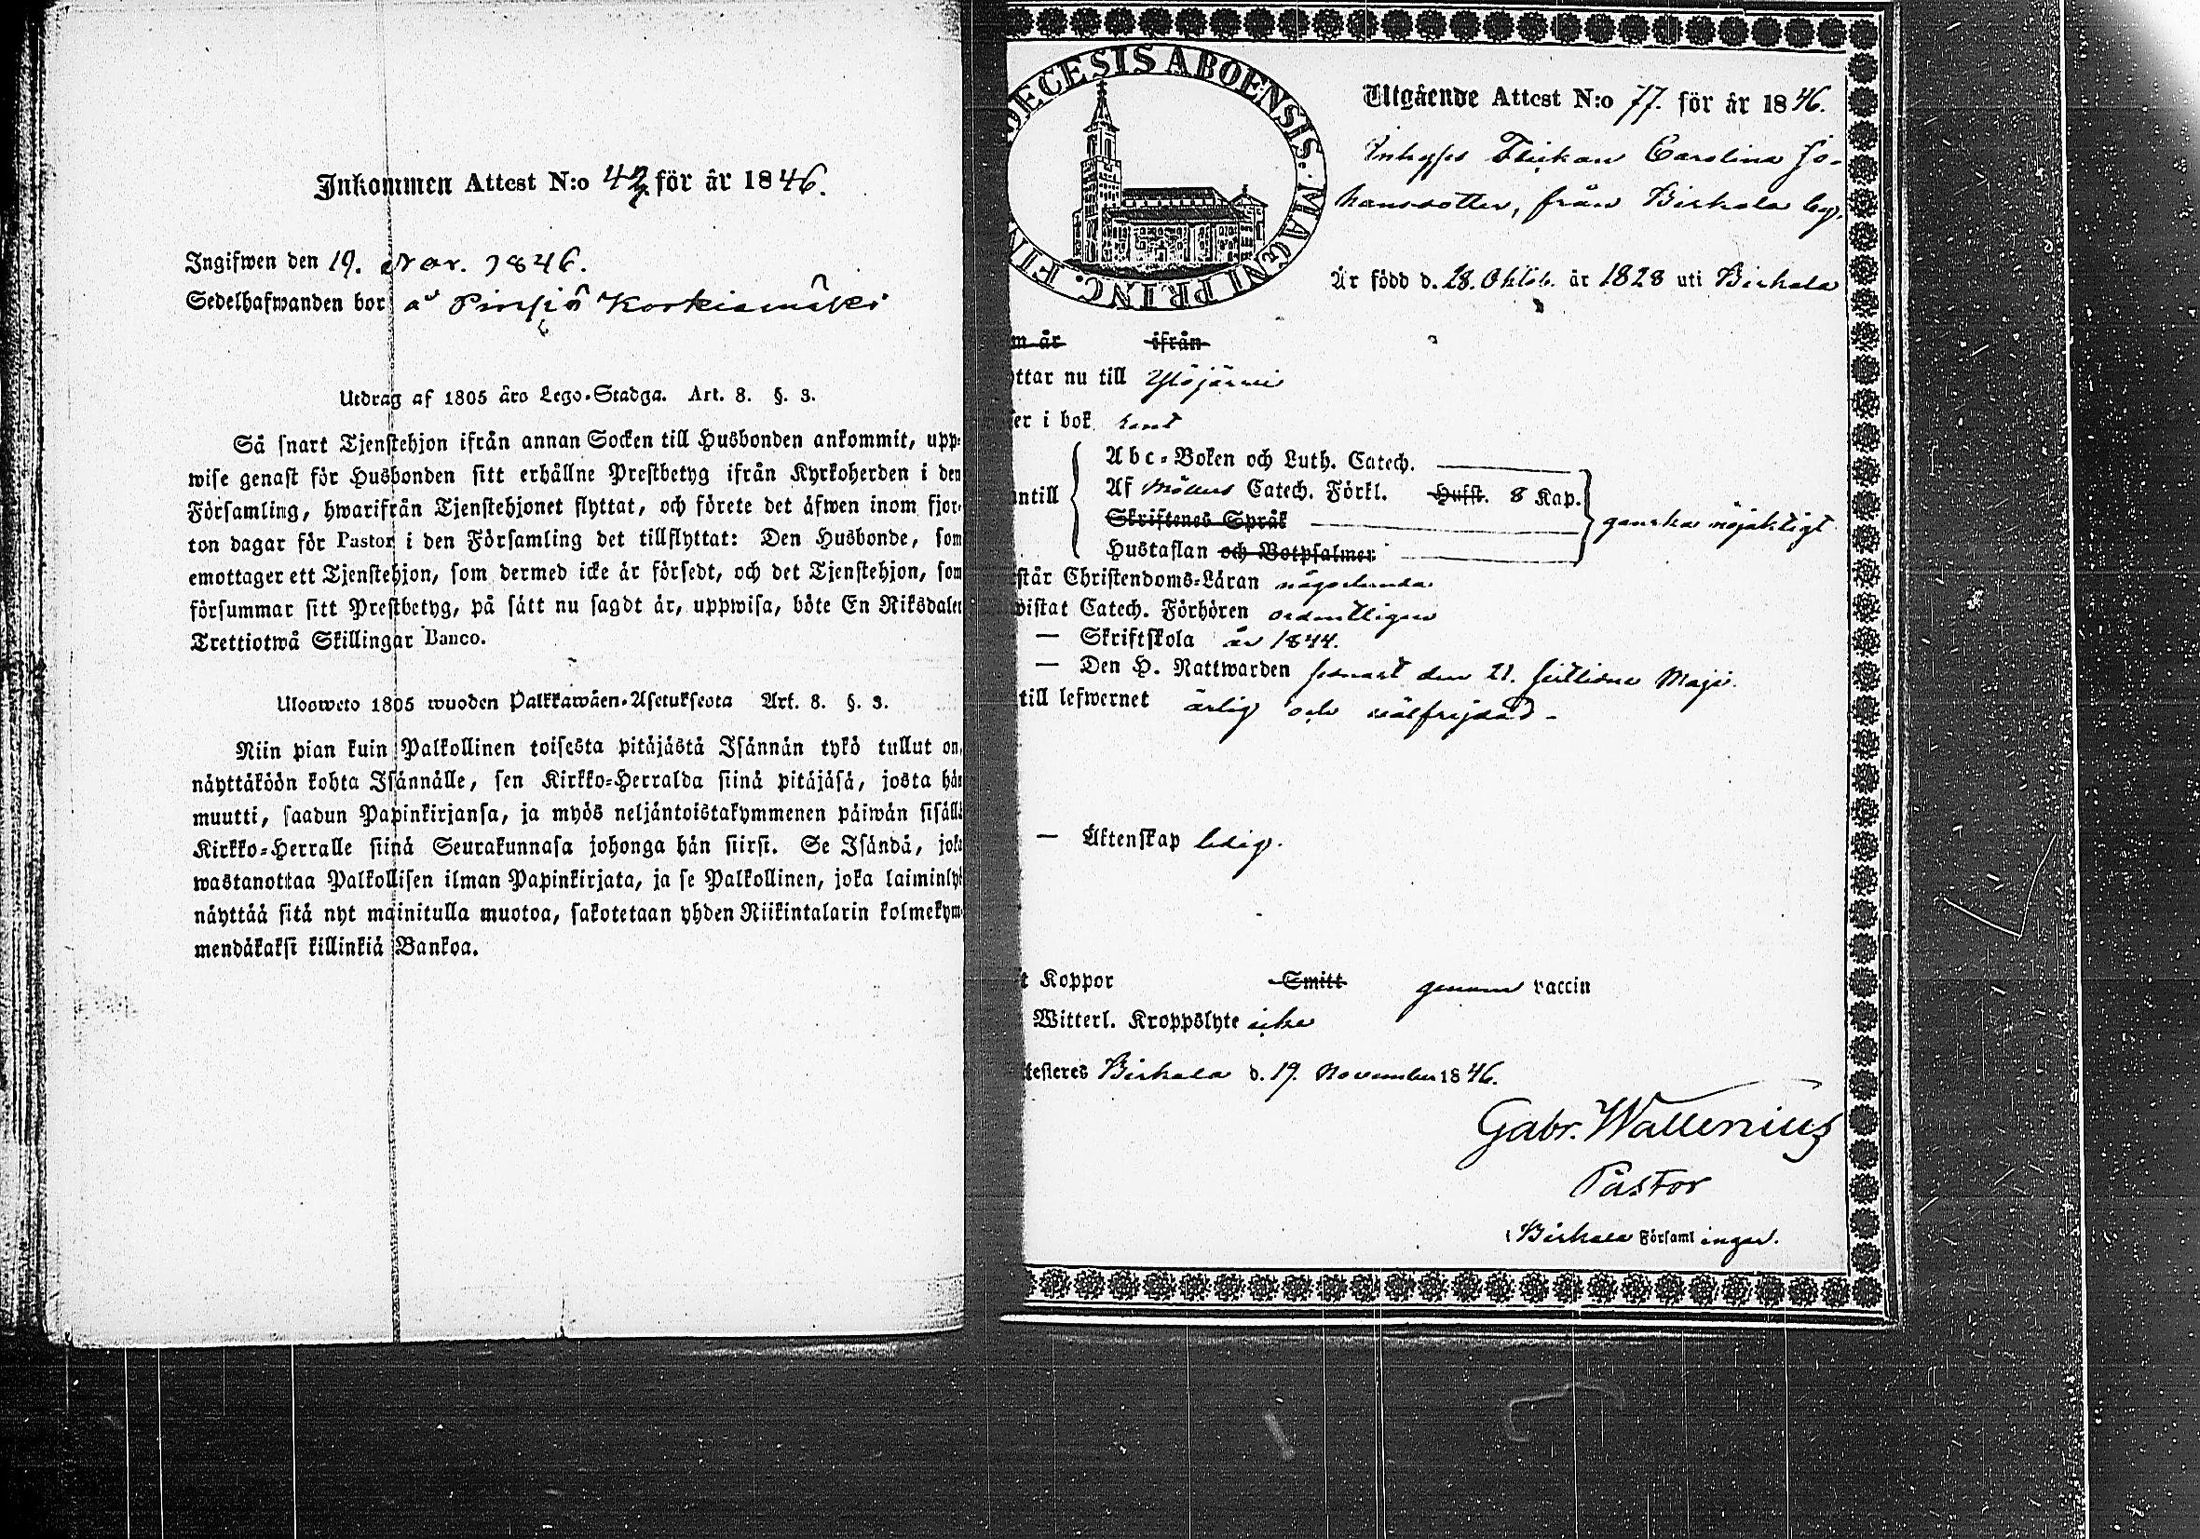 Inkommen Attest N:o 42 för år 1846.
Ingifwen den 19. Nov. 1846.
Sedelhafwanden bor å Pinsiö Korkiamäki
Utdrag af 1805 års Lego-Stadga. Art. 8. §. 3.
Så snart Tjenstehjon ifrån annan Socken till Husbonden ankommit, upp-
wise genast för Husbonden sitt erhållne Prestbetyg ifrån Kyrkoherden i den
Församling, hwarifrån Tjenstehjonet flyttat, och förete det äfwen inom fjor-
ton dagar för Pastor i den Församling det tillflyttat: Den Husbonde, som
emottager ett Tjenstehjon, som dermed icke är försedt, och det Tjenstehjon, som
försummar sitt Prestbetyg, på sätt nu sagdt är, uppwisa, böte En Riksdaler
Trettiotwå Skillingar Banco.
Uloosweto 1805 wuoden Palkkawäen-Asetuksesta Art. 8. §. 3.
Niin pian kuin Palkollinen toisesta pitäjästä Isännän tykö tullut on,
näyttäköön kohta Isännälle, sen Kirkko-Herralda siinä pitäjäsä, josta hän
muutti, saadun Papinkirjansa, ja myös neljäntoistakymmenen päiwän sisäll
Kirkko-Herralle siinä Seurakunnasa johonga hän siirsi. Se Isändä, joka
wastanottaa Palkollisen ilman Papinkirjata, ja se Palkollinen, joka laiminly
näyttää sitä nyt mainitulla muotoa, sakotetaan yhden Riikintalarin kolmekym-
mendäkaksi killinkiä Bankoa.
DIECESIS ABOENSIS. MAGNI PRINC. FIN
Utgående Attest N:o 77. för år 1846.
Inhyses Flickan Carolina Jo-
hansdotter, från Birkala by,
Är född d. 28. Oktob. år 1828 uti Birkala
m år ifrån
ttar nu till Ylöjärvi
ser i bok rent
ntill
Abc-Boken och Luth. Catech.
Af Möllers Catech. Förkl. Husst. 8 Kap.
Skriftenes Språk
ganska nöjaktigt
Hustaflan och Botpsalmer
står Christendoms-Läran någorlunda
vistat Catech. Förhören ordentligen
— Skriftskola år 1844.
— Den H. Nattwarden senast den 21. sistlidne Maji.
till lefwernet ärlig och välfrejdad -
— Äktenskap ledig.
t Koppor Smitt genom vaccin
Witterl. Kroppslyte icke
testeres Birkala d. 19. November 1846.
Gabr. Wallenius
Pastor
i Birkala Församlingar.